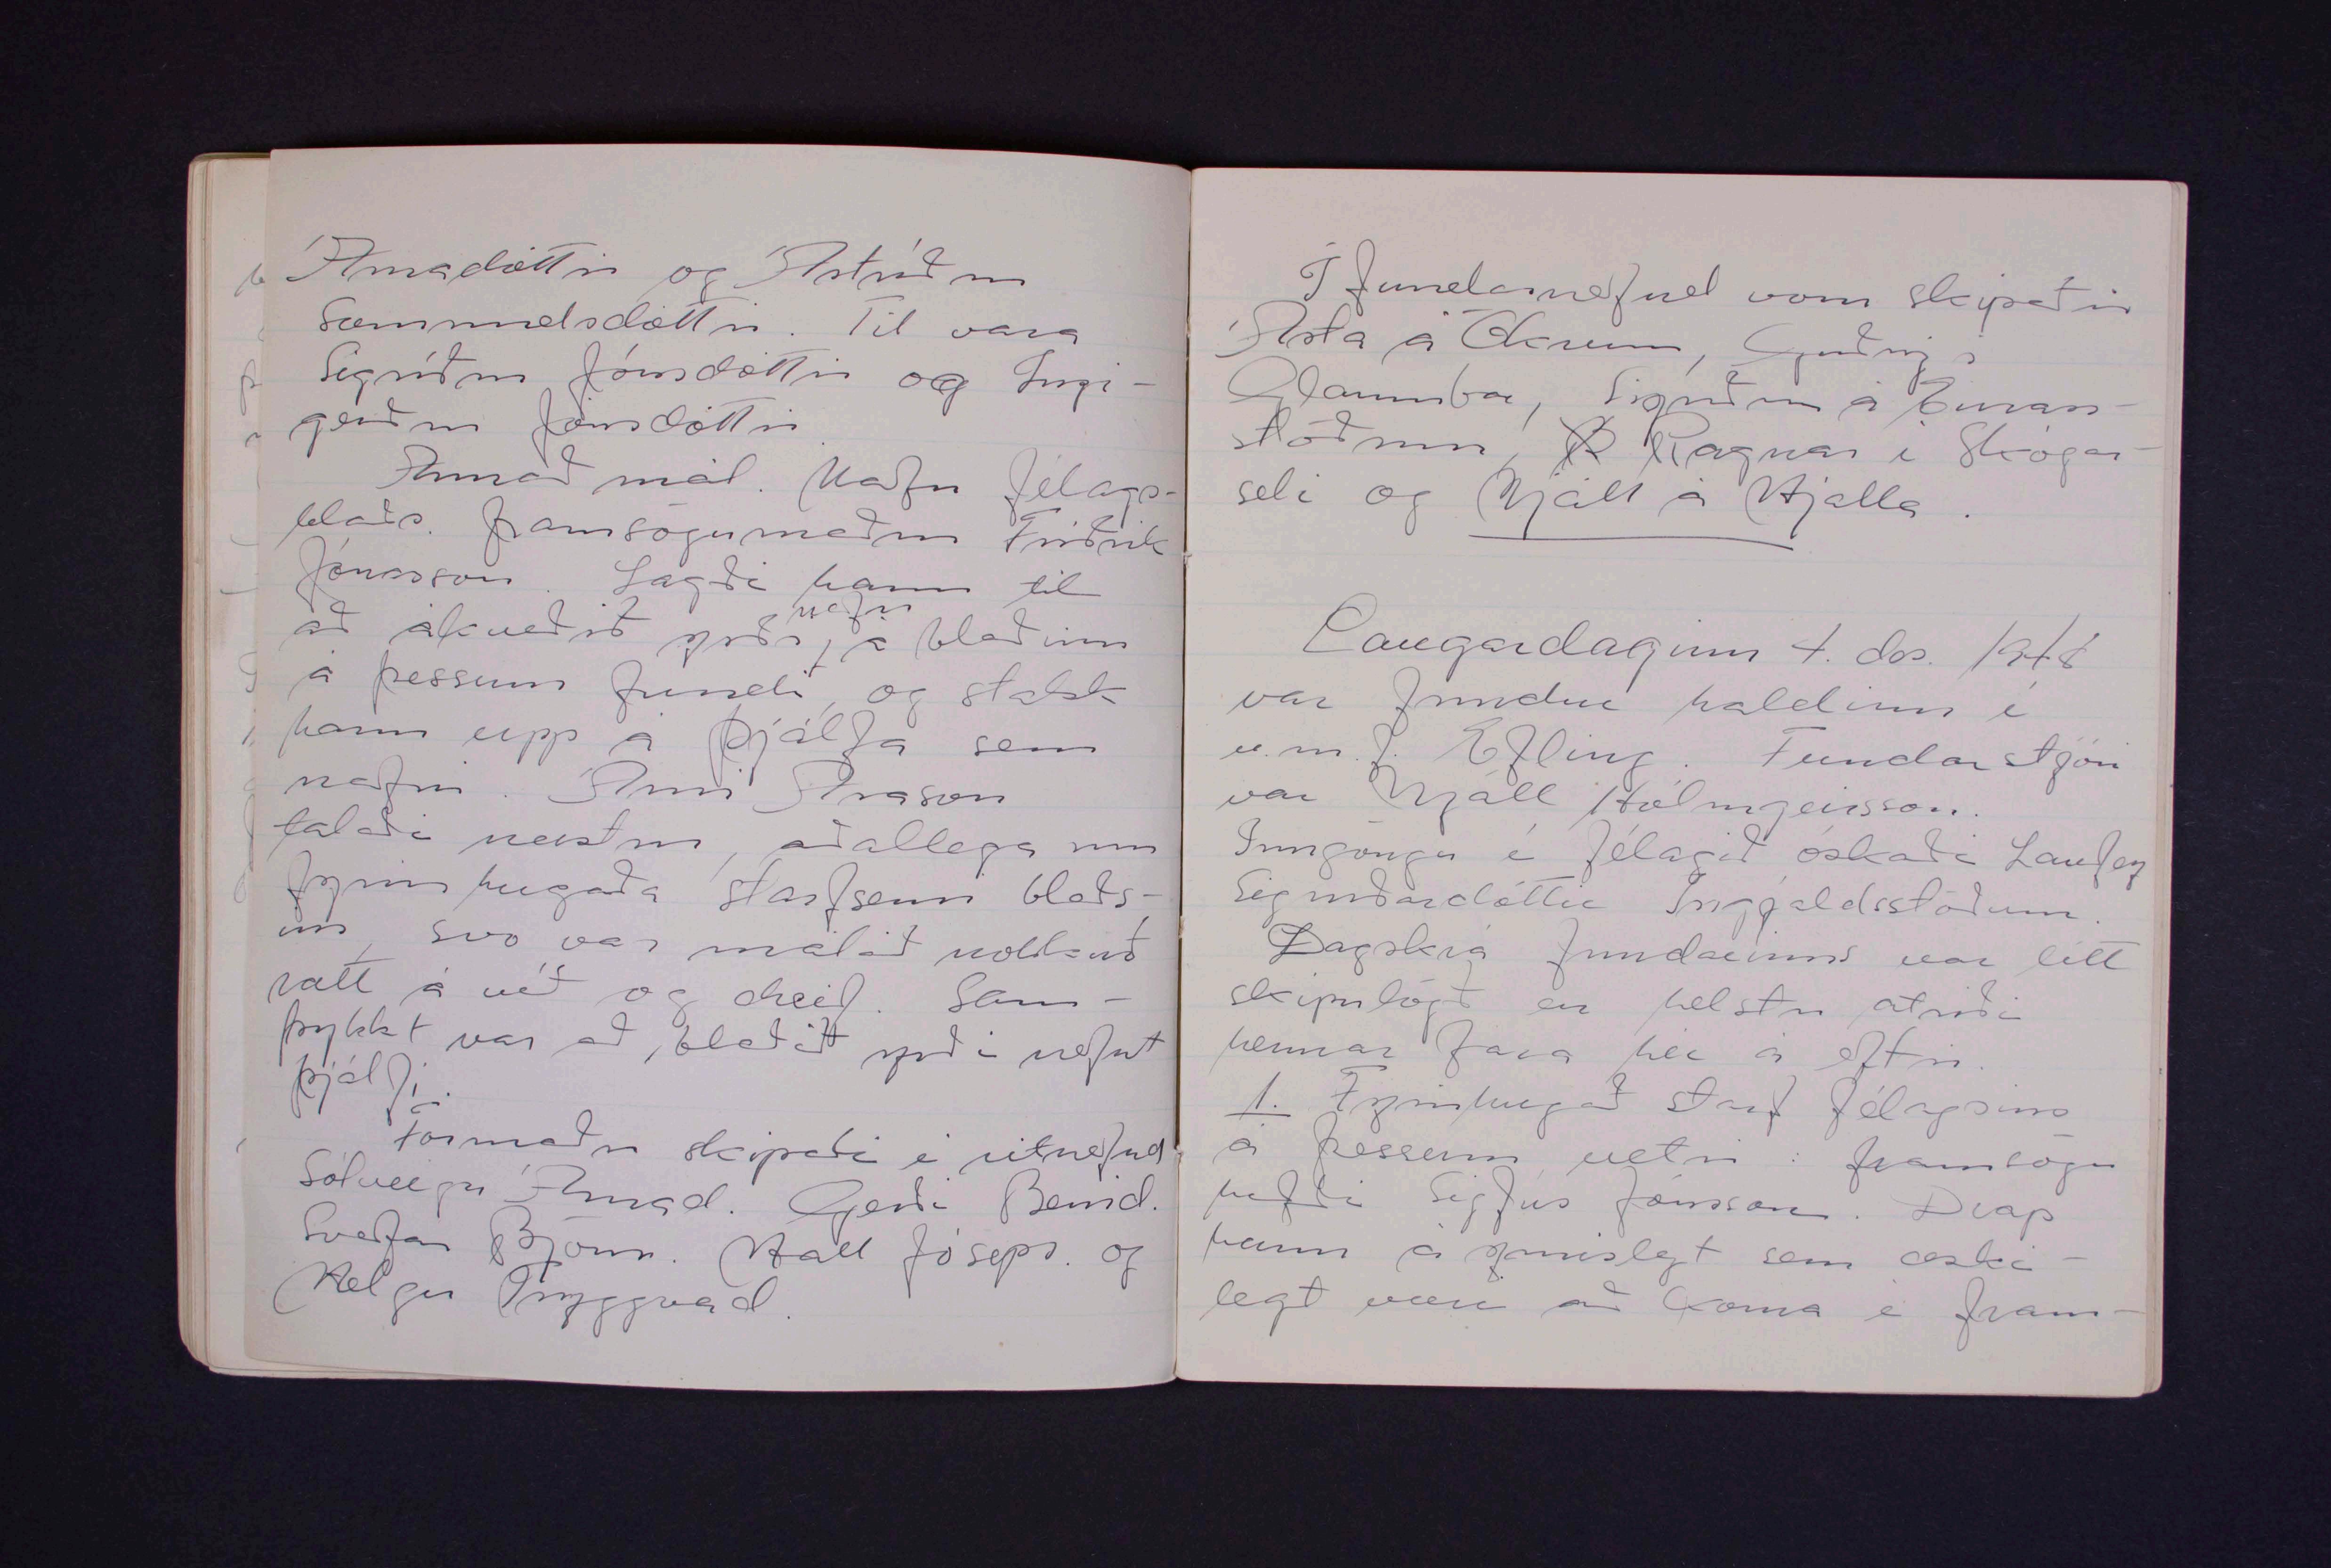 Árnadóttir og Ástríður
Sæmundsdóttir. Til vara
Sigríður Jónsdóttir og Ingi-
gerður Jónsdóttir.
Annað mál. Nafn félags-
blaðs. Framsögumaður Friðrik
Jónasson. Lagði hann til
að ákveðið yrði nafn á blaðinu
á þessum fundi, og stakk
hann upp á Þjálfa sem
nafni. Árni Arason
talaði næstur, aðallega um
fyrirhugaða starfsemi blaðs-
ins, svo var málið nokkuð
rætt á víð og dreif. Sam-
þykkt var að blaðið yrði nefnt
Þjálfi.
Formaður skipaði í ritnefnd
Sólveigu Árnad. Gerði Benid.
Svafar Björns. Hall Jóseps. og
Helgu Tryggvad.
Í fundarnefnd vom skipaðir
Ásta á Ökrum, Guðný í
Glaumbæ, Sigríður á Einars-
stöðum, Ragnar í Skógar-
seli og Njáll á Hjalla.
Laugardaginn 4. des. 1948
var fundur haldinn í
u.m.f. Efling. Fundarstjóri
var Njáll Hólmgeirsson.
Inngöngu í félagið óskaði Laufey
Sigurðardóttir Ingjaldsstöðum.
Dagskrá fundarins var lítt
skipulögð en helstu atriði
hennar fara hér á eftir.
1. Fyrirhugað starf félagsins
á þessum vetri: framsögu
hafði Sigfús Jónsson. Drap
hann á ýmislegt sem æski-
legt væri að koma í fram-